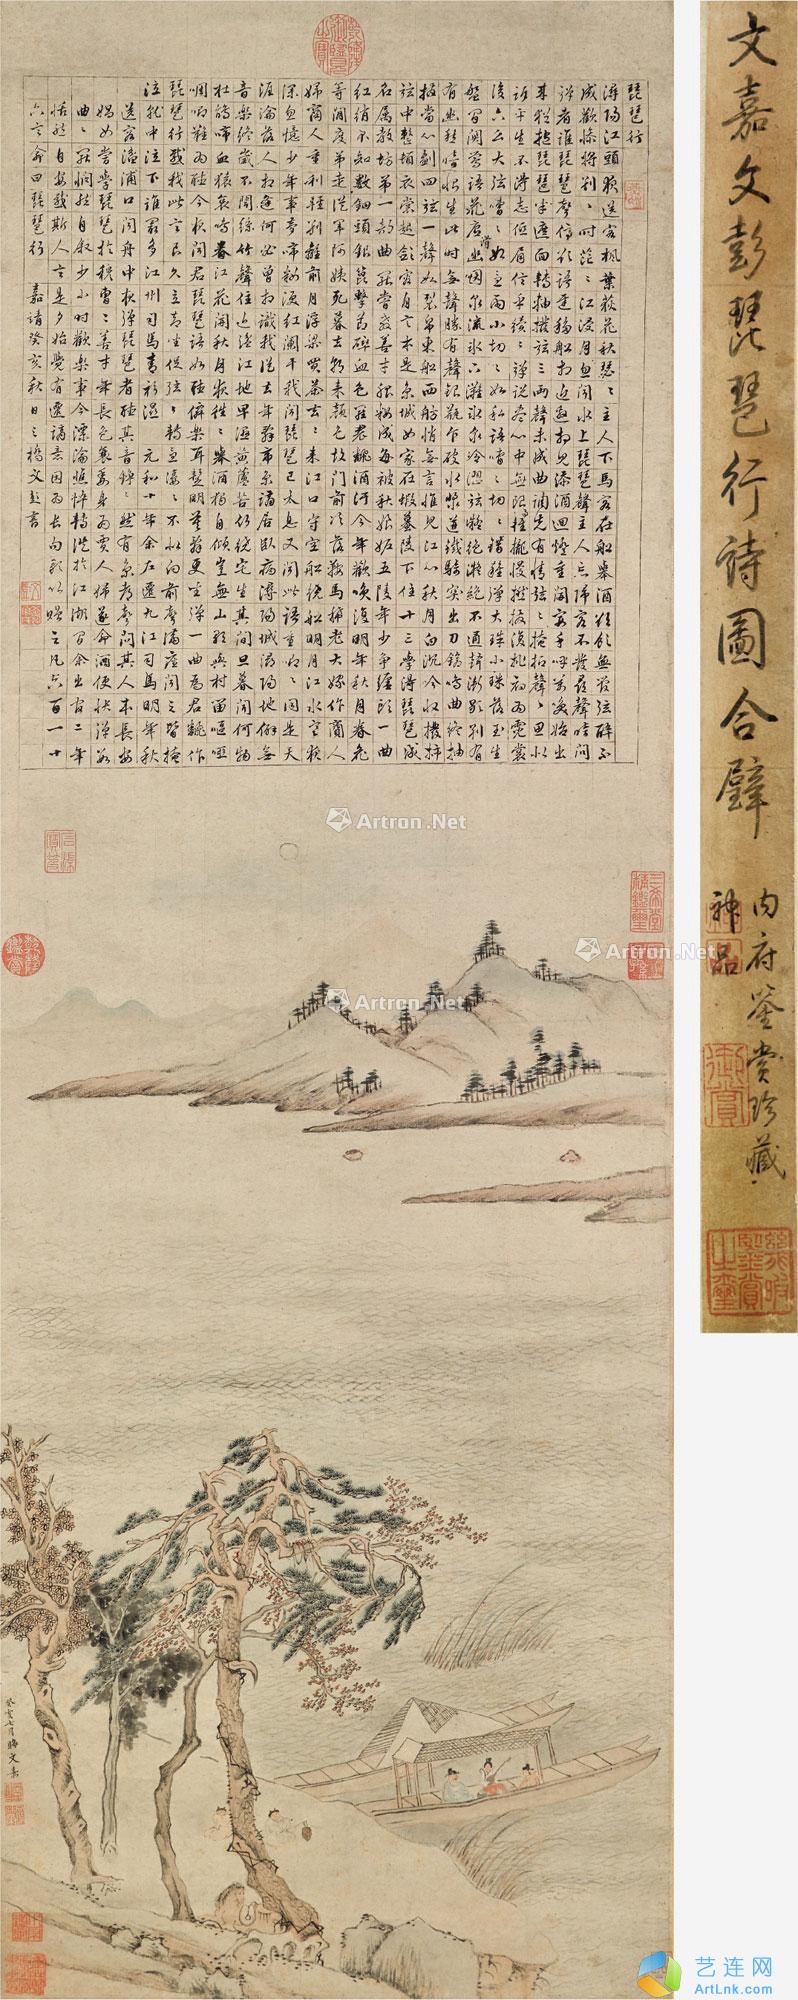 琵琶行
潯陽江頭夜送客楓葉荻花秋瑟〻主人下馬客在船舉酒欲飲無管弦醉不
成歡慘將別〻時茫〻江浸月忽聞水上琵琶聲主人忘歸客不發尋聲暗問
彈者誰琵琶聲停欲語遲移船相近邀相見添酒迴燈重開宴千呼萬喚始出
來猶抱琵琶半遮面轉軸撥弦三兩聲未成曲調先有情弦〻掩抑聲〻思似
訴平生不得志低眉信手續〻彈說盡心中無限事輕攏慢撚抹復挑初為霓裳
後六么大弦嘈〻如急雨小弦切〻如私語嘈〻切〻錯雜彈大珠小珠落玉生
盤間關鶯語花底滑幽咽泉流水下灘水泉冷澀弦凝絕凝絕不通聲漸歇別有
有幽愁暗恨生此時無聲勝有聲銀瓶乍破水漿迸鐵騎突出刀鎗鳴曲終抽
撥當心劃四弦一聲如裂帛東船西舫悄無言惟見江心秋月白沉吟收撥插
弦中整頓衣裳起斂容自言本是京城女家在蝦蟇陵下住十三學得琵琶成
名属教坊第一部曲罷嘗教善才服妝成每被秋娘妬五陵年少爭纏頭一曲
紅綃不知數鈿頭銀篦擊節碎血色羅裙翻酒汙今年歡笑復明年秋月春風
等閒度弟走從軍阿姨死暮去朝來顏色故門前冷落鞍馬稀老大嫁作商人
婦商人重利輕別離前月浮梁買茶去〻來江口守空船繞船明月江水寒夜
深忽憶少年事夢啼粧淚紅闌干我聞琵琶已太息又聞此語重唧〻同是天
涯淪落人相逢何必曾相識我從去年辭帝京謫居臥病潯陽城潯陽地僻無
音樂終歲不聞絲竹聲住近湓江地卑濕黃蘆苦竹繞宅生其間旦暮聞何物
杜鵑啼血猿哀鳴春江花朝秋月夜往〻舉酒獨自傾豈無山歌與村笛嘔啞
啁哳難為聽今夜聞君琵琶語如聽仙樂耳暫明莫辭更坐彈一曲為君翻作
琵琶行感我此言良久立却坐促弦〻轉急淒〻不似向前聲滿座聞之皆掩
泣就中泣下誰最多江州司馬青衫濕 元和十年余左遷九江司馬明年秋
送客湓浦口聞舟中夜彈琵琶者聽其音錚〻然有京都聲問其人本長安
倡女嘗學琵琶於穆曹二善才年長色衰委身為賈人婦遂命酒使快彈數
曲〻罷憫然自敘少小時歡樂事今漂淪憔悴轉徙於江湖間余出官二年
恬然自安感斯人言是夕始覺有遷謫意因為長句歌以贈之凡六百一十
六言命曰琵琶行 嘉靖癸亥秋日三橋文彭書
癸亥七月晦文嘉
文嘉文彭琵琶行詩圖合璧
內府鑒賞珍藏
神品
Artron.Net
Artron.Net
Artron.Net
艺连网
ArtLnk.com